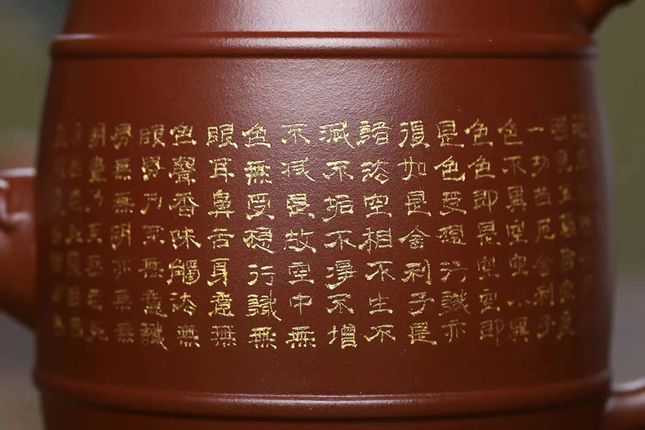 一切苦厄舍利子
色不異空空不異
色色即是空空即
是色受想行識亦
復如是舍利子是
諸法空相不生不
滅不垢不淨不增
不減是故空中無
色無受想行識無
眼耳鼻舌身意無
色聲香味觸法無
眼界乃至無意識
界無無明亦無無
明盡乃至無老死